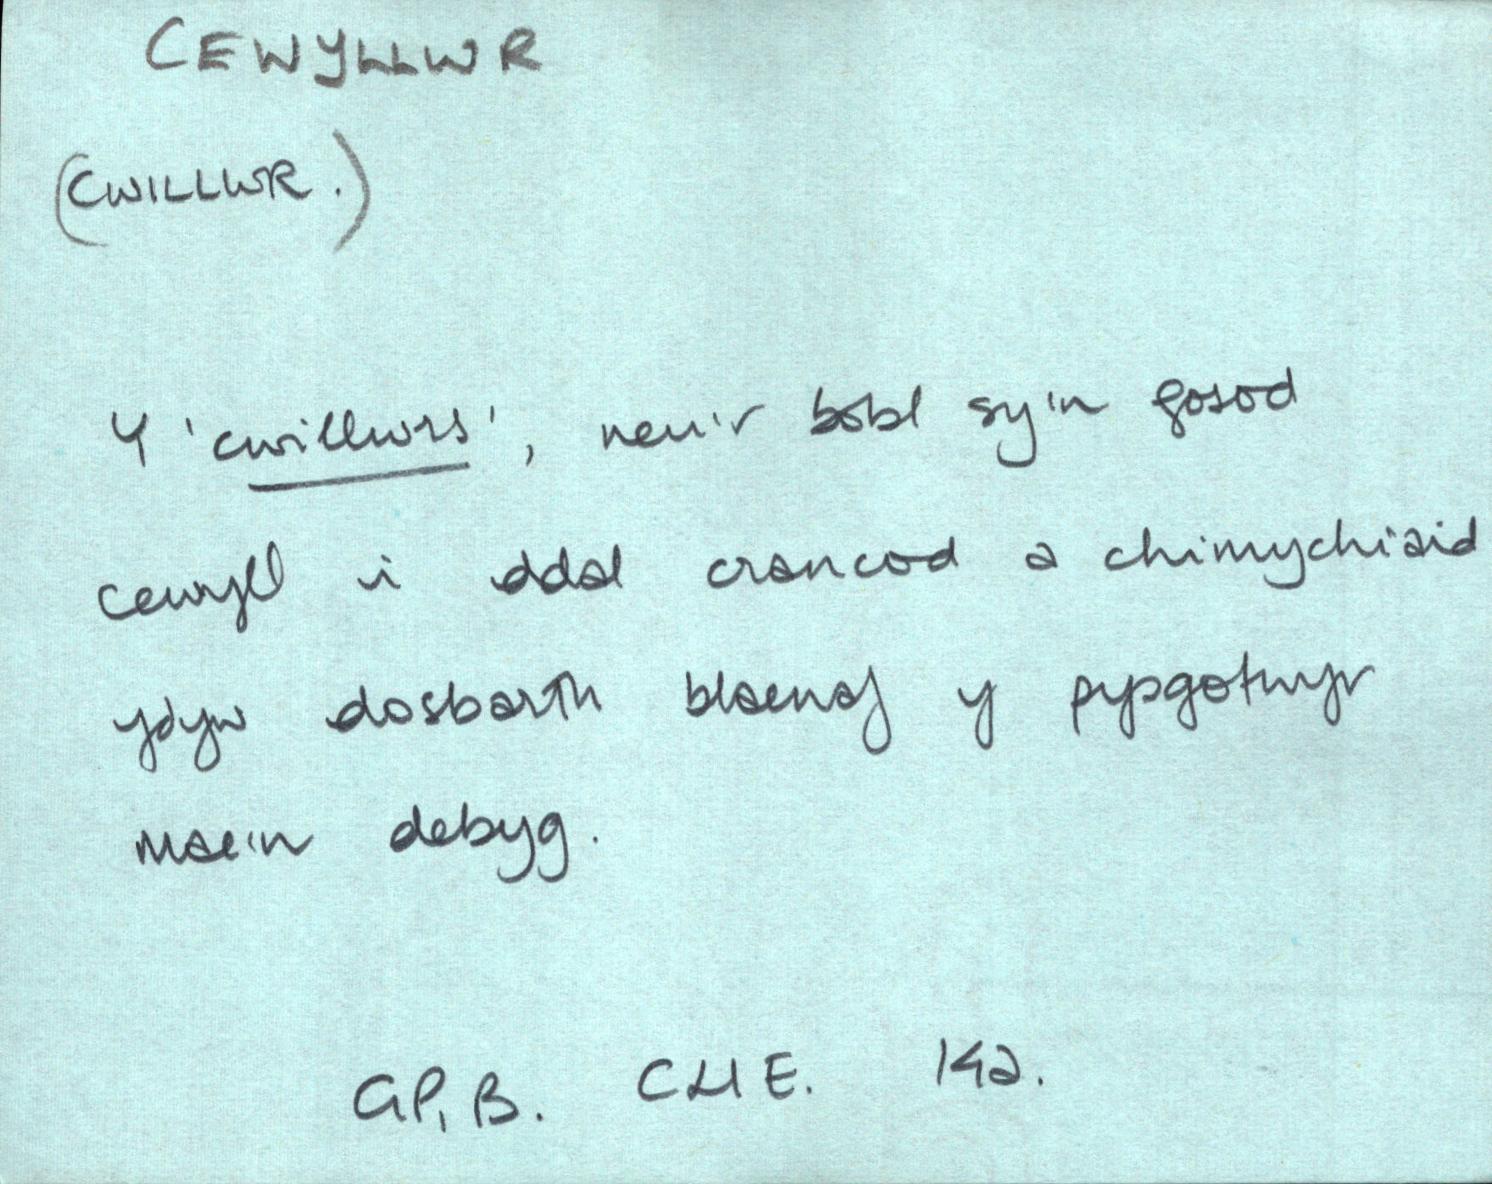 CEWYLLWR
(CWILLWR.)
Y 'cwillwrs', neu'r bobl sy'n gosod
cewyll i ddal crancod a chimychiaid
ydyw dosbarth blaenaf y pysgotwyr
mae'n debyg.
GP, B. CLlE. 142.